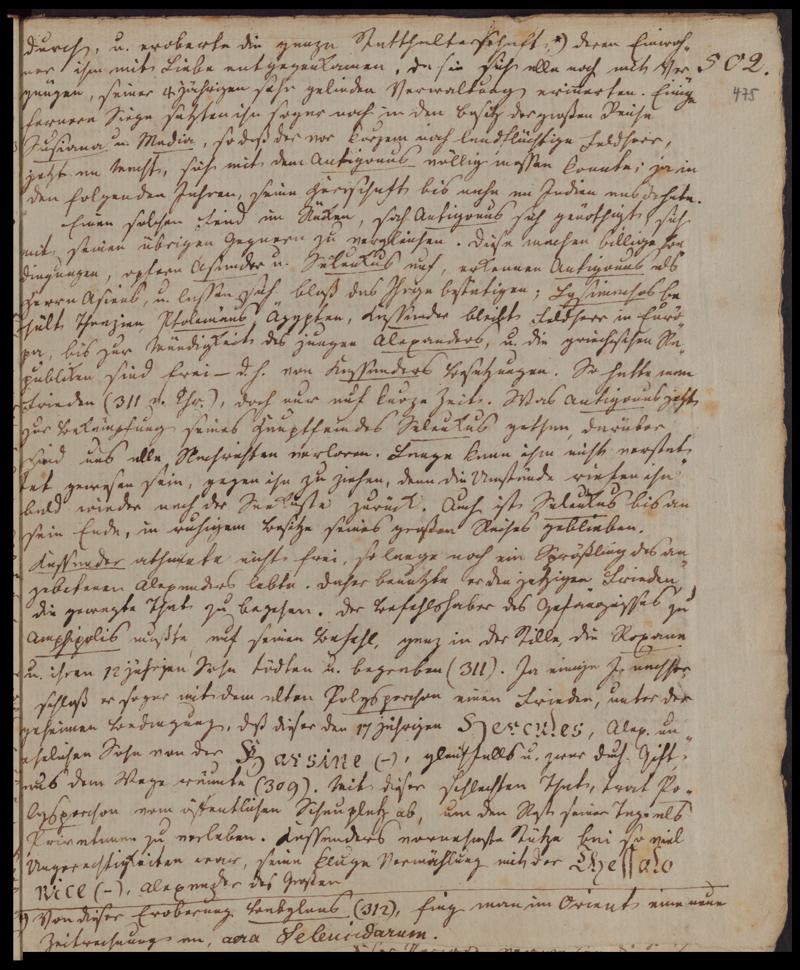 durch, u. eroberte die ganze Statthalterschaft, *) deren Einwoh-
ner ihm mit Liebe entgegenkamen, da sie sich alle noch mit Ver- 502.
gnügen, seiner 4 jährigen sehr gelinden Verwaltung erinnerten. Einige 475
fernere Siege setzten ihn sogar noch in den Besitz der großen Reiche
Susiana u. Media, so daß der vor kurzem noch landflüchtige Feldherr,
jetzt an Macht, sich mit dem Antigonus völlig messen konnte; ja in
den folgenden Jahren, seine Herrschaft bis nahe an Indien ausdehnte.
Einen solchen Feind im Rücken, sah Antigonus sich genöthigt, sich
mit seinen übrigen Gegnern zu vergleichen. Diese machen billige Be-
dingungen, opfern Asander u. Seleukus auf, erkennen Antigonus als
Herrn Asiens, u. lassen sich bloß das Ihrige bestätigen; Lysimachos be-
hält Thrazien, Ptolemäus, Ägypten, Kassander bleibt Feldherr in Euro-
pa, bis zur Mündigkeit des jungen Alexanders, u. die griechischen Re-
publiken sind frei – d.h. von Kassanders Besatzungen. So hatte man
Frieden (311 v. Chr.), doch nur auf kurze Zeit. Was Antigonus jetzt
zur Bekämpfung seines Hauptfeindes Seleukus gethan, darüber
sind uns alle Nachrichten verloren. Lange kann ihm nicht verstat-
tet gewesen sein, gegen ihn zu ziehen, denn die Umstände riefen ihn
bald wieder nach der Seeküste zurück. Auch ist Seleukus bis an
sein Ende, in ruhigem Besitze seines großen Reiches geblieben.
Kassander athmete nicht frei, so lange noch ein Sprößling des an-
gebetenen Alexanders lebte. Daher benutzte er den jetzigen Frieden,
die gewagte That zu begehen. Der Befehlshaber des Gefängnisses zu
Amphipolis mußte, auf seinen Befehl, ganz in der Stille, die Roxane
u. ihren 12 jährigen Sohn tödten u. begraben (311). Ja einige J. nachher
schloß er sogar mit dem alten Polysperchon einen Frieden, unter der
geheimen Bedingung, daß dieser den 17 jährigen Hercules, Alex. un-
ehelichen Sohn von der Barsine (-), gleichfalls u. zwar durch Gift
aus dem Wege räumte (309). Mit dieser schlechten That, trat Po-
lysperchon vom öffentlichen Schauplatz ab, um den Rest seiner Tage als
Privatmann zu verleben. Kassanders vornehmste Stütze bei so viel
Ungerechtigkeiten war, seine kluge Vermählung mit der Thessalo
nice (-), Alexander des Großen
*) Von dieser Eroberung Babylons (312), fing man im Orient eine neue
Zeitrechnung an, aera Seleucidarum.